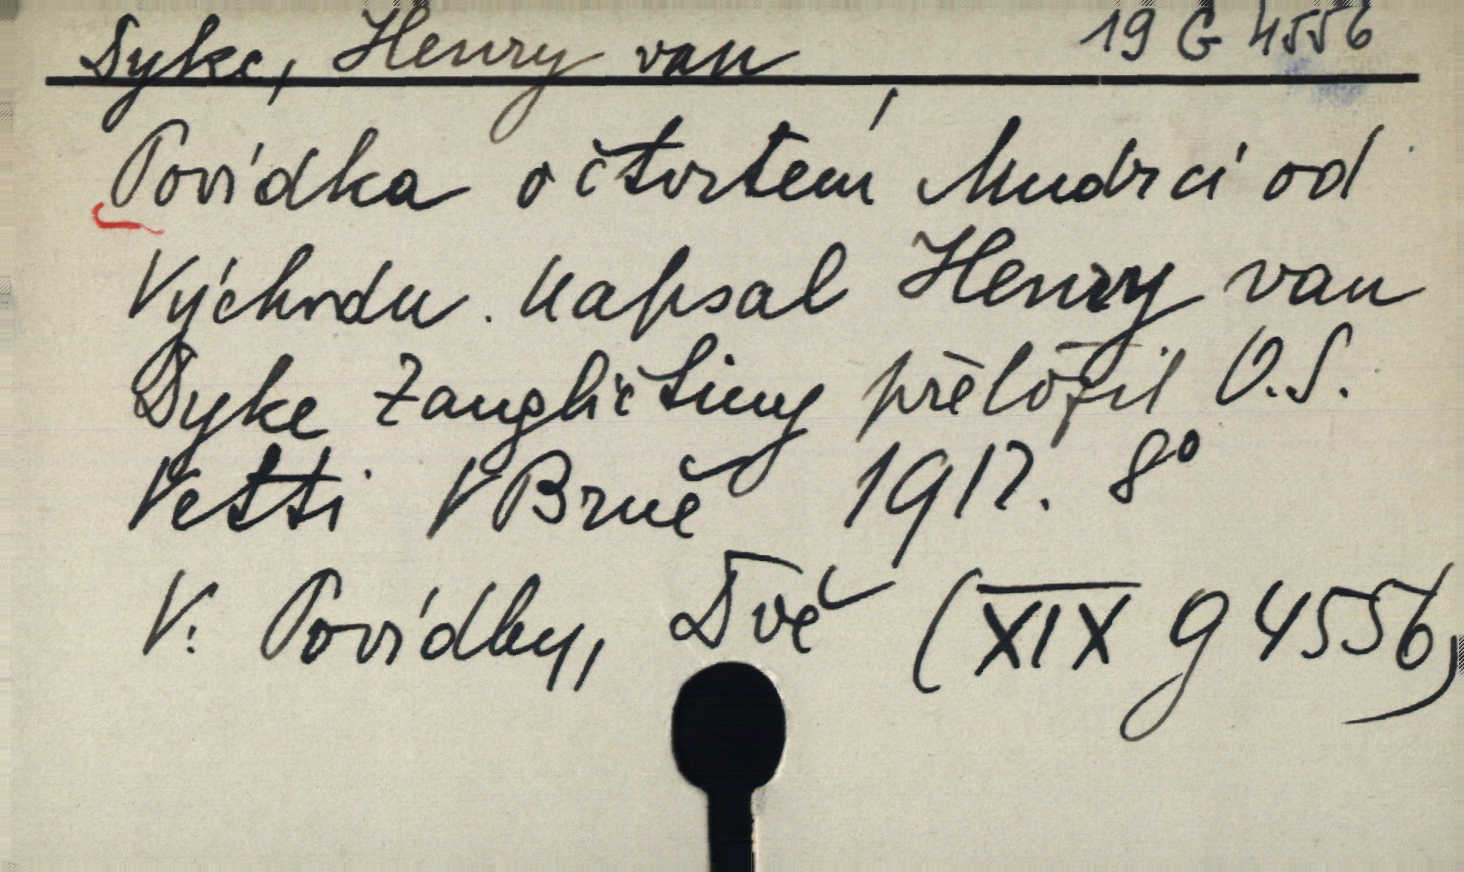 Dyke, Henry van 19 G 4556
Povídka o čtvrtém Mudrci od
Východu. Napsal Henry van
Dyke Z angličtiny přeložil O.S.
Vetti V Brně 1912. 8°
V: Povídky, Dvě (XIX g 4556)